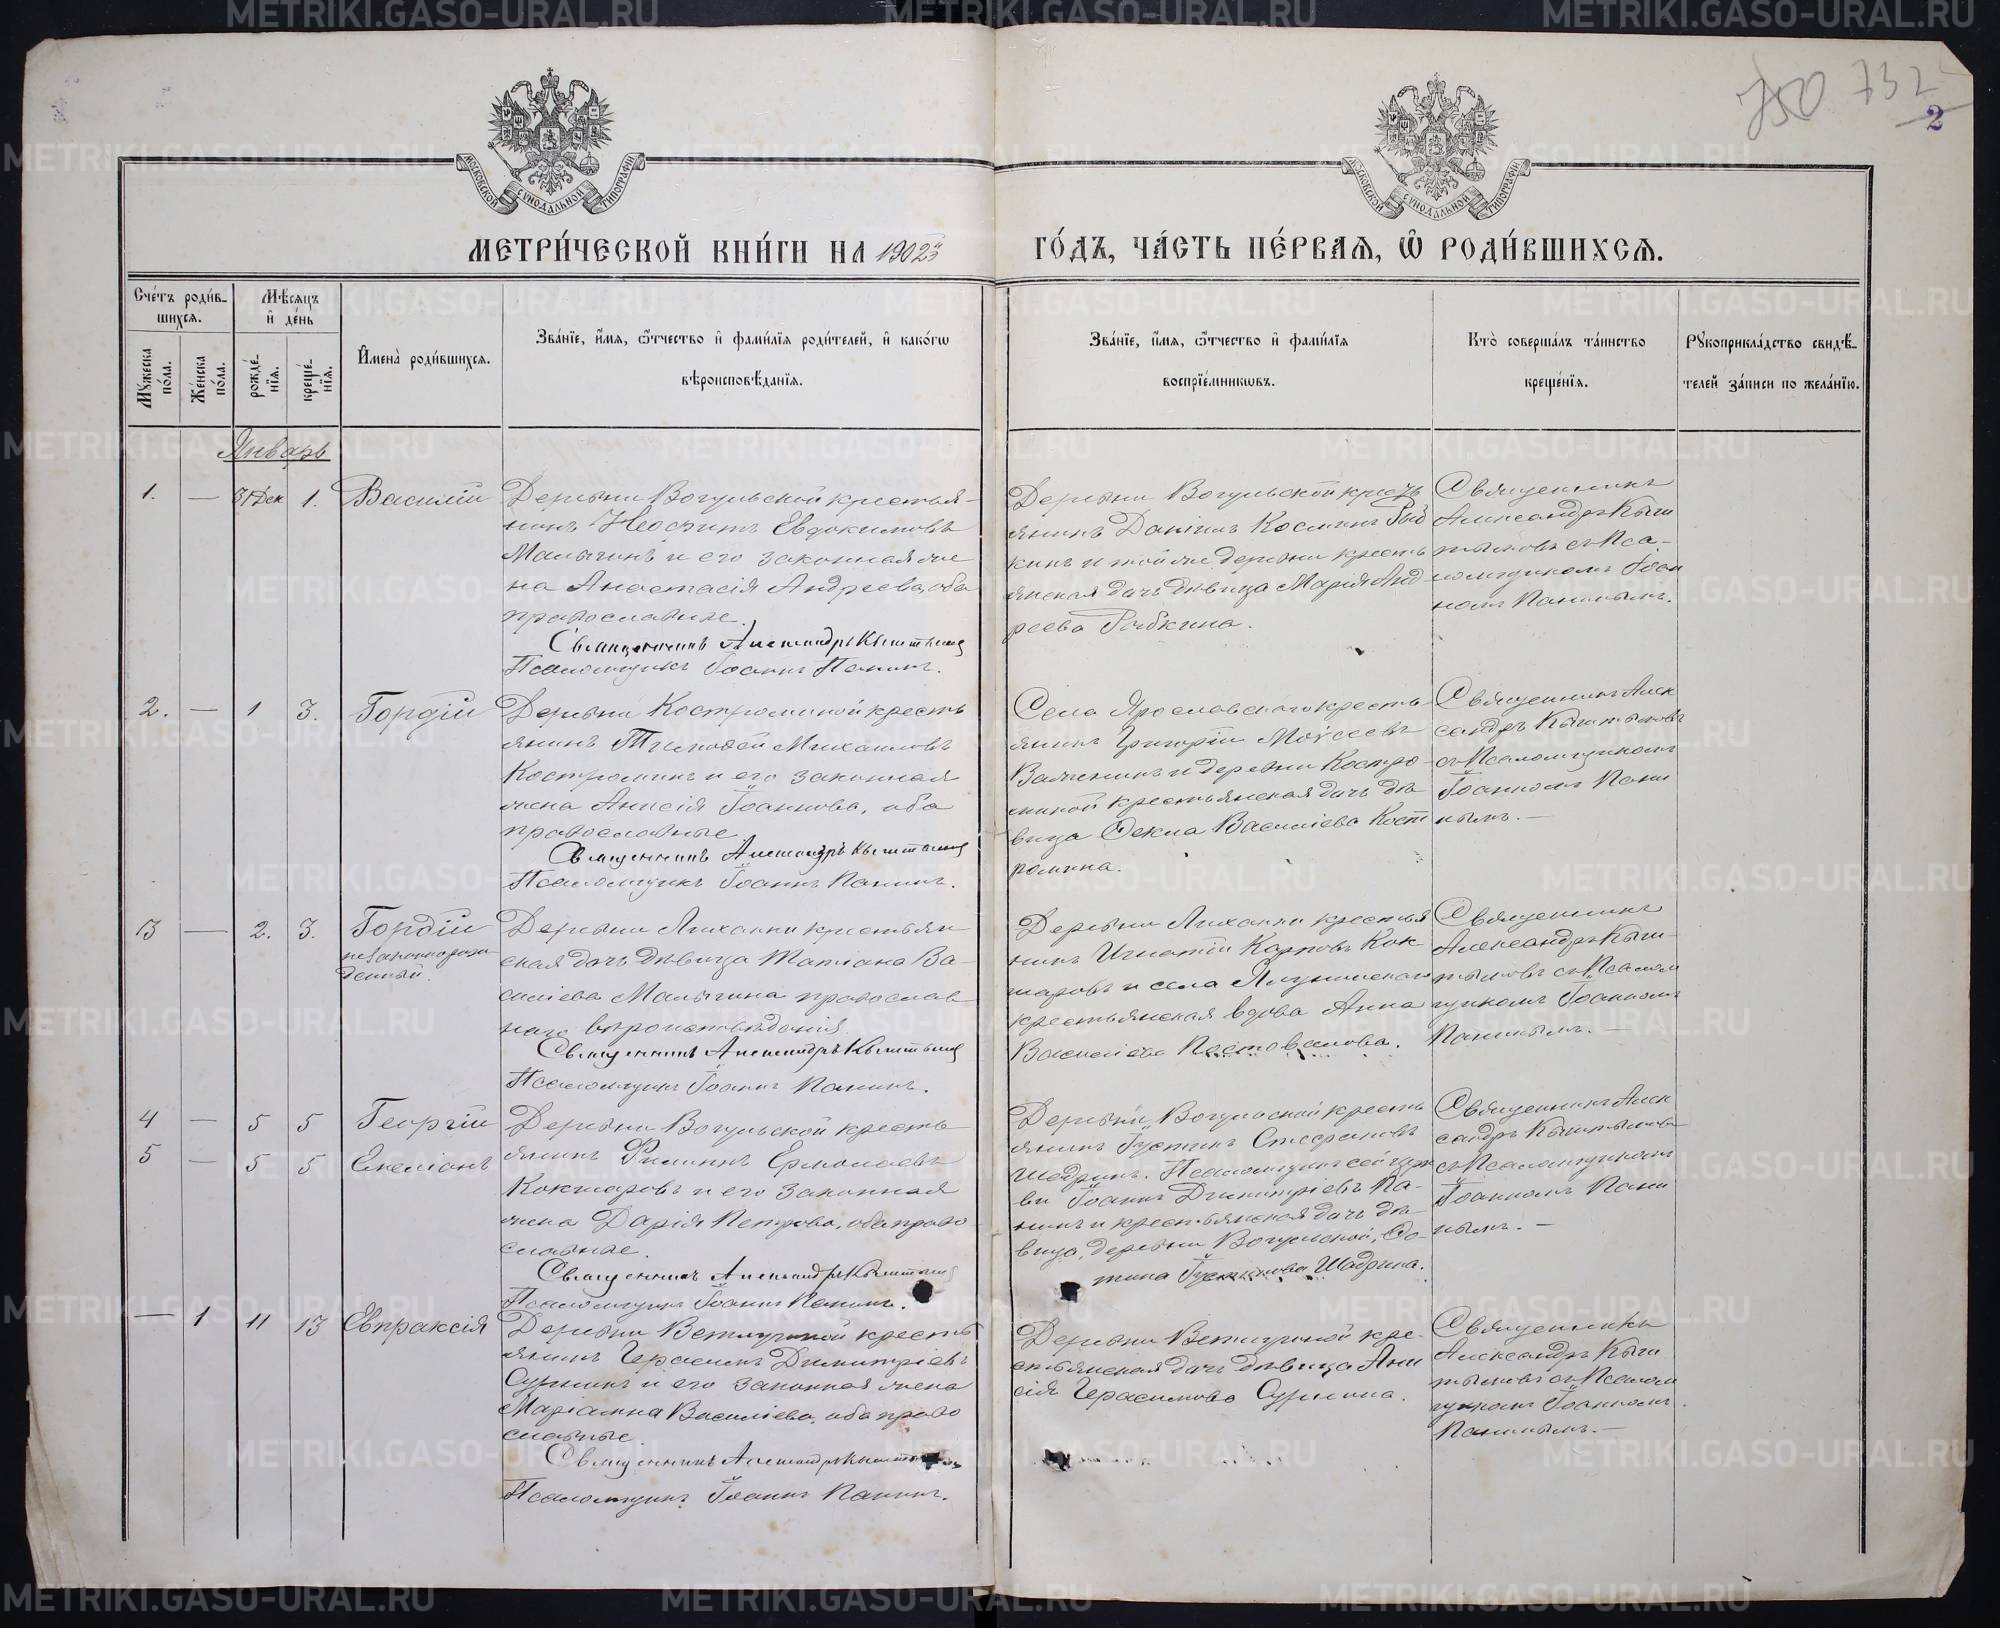 750 732
2
МОСКОВСКОЙ СѴНОДАЛЬНОЙ ТИПОГРАФІИ
МОСКОВСКОЙ СѴНОДАЛЬНОЙ ТИПОГРАФІИ
МЕТРИ́ЧЕСКОЙ КНИ́ГИ НА 1902й ГО́ДЪ, ЧА́СТЬ ПЕ́РВАѦ, Ѽ РОДИ́ВШИХСѦ.
Сче́тъ роди́в-
шихсѧ.
Мѣ́сѧцъ
и҆ де́нь
Мꙋ́жеска
по́ла.
Же́нска
по́ла.
рожде́-
нїѧ.
креще́-
нїѧ.
И҆мена̀ роди́вшихсѧ.
Зва́нїе, и҆́мѧ, ѻ҆́тчество и҆ фами́лїѧ роди́телей, и҆ како́гѡ
вѣроисповѣ́данїѧ.
Зва́нїе, и҆́мѧ, ѻ҆́тчество и҆ фами́лїѧ
воспрїе́мникѡвъ.
Кто̀ соверша́лъ та́инство
креще́нїѧ.
Рꙋкоприкла́дство свидѣ́-
телей за́писи по жела́нїю.
Январь
1. — 31 Дек 1. Василій
Деревни Вогульской крестья-
нинъ Неофитъ Евдокимовъ
Малыгинъ и его законная же
на Анастасія Андреева, оба
православные.
Священникъ Александръ Кыштымов
Псаломщикъ Іоаннъ Панинъ.
Деревни Вогульской кресть
янинъ Даніилъ Косминъ Рыб
кинъ и той же деревни кресть
янская дочь дѣвица Марія Анд
реева Рыбкина.
Священникъ
Александръ Кыш
тымовъ съ Пса-
ломщикомъ Іоан
номъ Панинымъ.
2. — 1 3. Гордій
Деревни Костроминой кресть
янинъ Тимофей Михаиловъ
Костроминъ и его законная
жена Анисія Іоаннова, оба
православные.
Священникъ Александръ Кыштымов
Псаломщикъ Іоаннъ Панинъ.
Села Ярославского кресть
янинъ Григорій Моѵсеевъ
и деревни Костро-
миной крестьянская дочь дѣ
вица Ѳекла Василіева Кост
ромина.
Священникъ Алек
сандръ Кыштымовъ
съ Псаломщикомъ
Іоанномъ Пани
нымъ. —
3 — 2. 3. Гордій
незаконнорож
денный.
Деревни Ляханки крестьян
ская дочь дѣвица Татіана Ва-
силіева Малыгина православ
наго вѣроисповѣданія.
Священникъ Александръ Кыштымов
Псаломщикъ Іоаннъ Панинъ.
Деревни Ляханки крестья
нинъ Игнатій Карповъ Кок-
шаровъ и села
крестьянская вдова Анна
Василіева Постовалова.
Священникъ
Александръ Кыш-
тымовъ съ Псалом
щикомъ Іоанномъ
Панинымъ. —
4 — 5 5 Георгій
5 — 5 5 Емеліанъ
Деревни Вогульской кресть
янинъ Филиппъ Ермолаевъ
Кокшаровъ и его законная
жена Дарія Петрова, оба право
славные.
Священникъ Александръ Кыштымов
Псаломщикъ Іоаннъ Панинъ.
Деревни Вогульской кресть
янинъ Іустинъ Стефановъ
Шадринъ. Псаломщикъ сей церк
ви Іоаннъ Димитріевъ Па-
нинъ и крестьянская дочь дѣ-
вица, деревни Вогульской, Фо-
тина Іустинова Шадрина.
Священникъ Алек
сандръ Кыштымовъ
съ Псаломщикомъ
Іоанномъ Пани
нымъ. —
— 1 11 13 Евпраксія
Деревни Ветлугиной кресть
янинъ Герасимъ Димитріевъ
Суринъ и его законная жена
Маріамна Василіева, оба право
славные
Священникъ Александръ Кыштымов
Псаломщикъ Іоаннъ Панинъ.
Деревни Ветлугиной кре-
стьянская дочь дѣвица Ани
сія Герасимова Сурина.
Священникъ
Александръ Кыш
тымовъ съ Псалом
щикомъ Іоанномъ
Панинымъ. —
METRIKI.GASO-URAL.RU